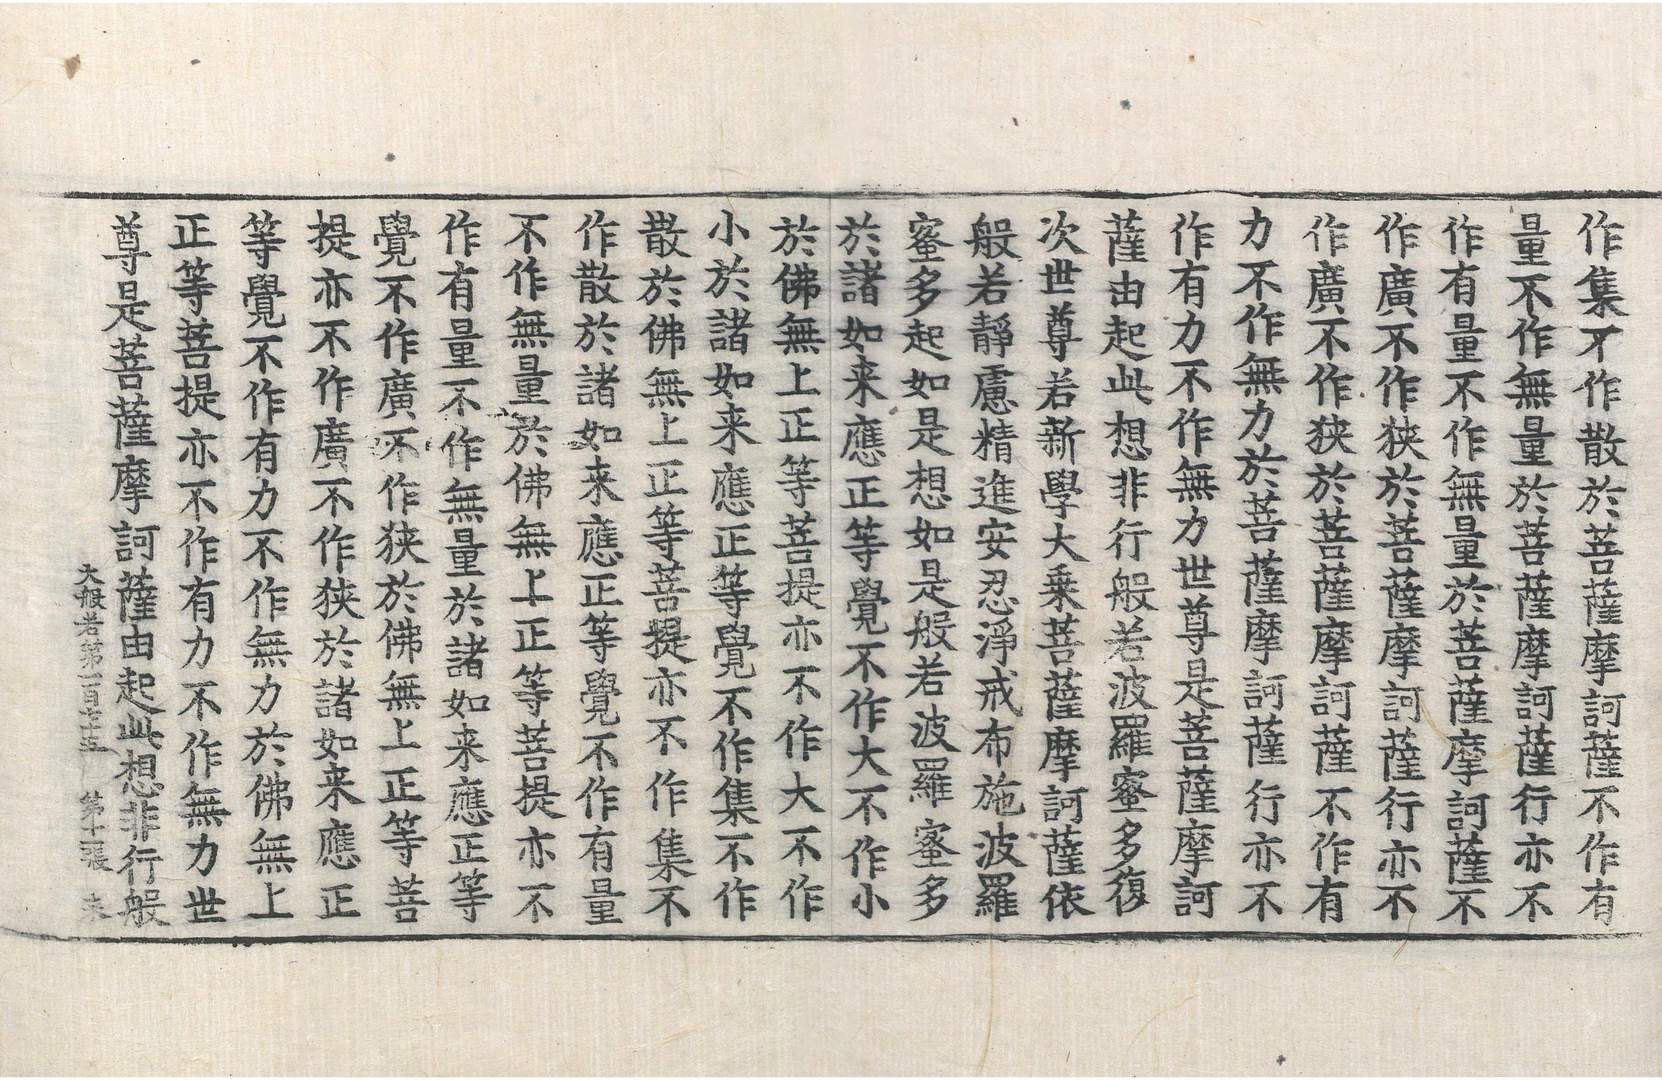 作集不作散於菩薩摩訶薩不作有
量不作無量於菩薩摩訶薩行亦不
作有量不作無量於菩薩摩訶薩不
作廣不作狹於菩薩摩訶薩行亦不
作廣不作狹於菩薩摩訶薩不作有
力不作無力於菩薩摩訶薩行亦不
作有力不作無力世尊是菩薩摩訶
薩由起此想非行般若波羅蜜多復
次世尊若新學大乘菩薩摩訶薩依
般若靜慮精進安忍淨戒布施波羅
蜜多起如是想如是般若波羅蜜多
於諸如来應正等覺不作大不作小
於佛無上正等菩提亦不作大不作
小於諸如来應正等覺不作集不作
散於佛無上正等菩提亦不作集不
作散於諸如来應正等覺不作有量
不作無量於佛無上正等菩提亦不
作有量不作無量於諸如来應正等
覺不作廣不作狹於佛無上正等菩
提亦不作廣不作狹於諸如来應正
等覺不作有力不作無力於佛無上
正等菩提亦不作有力不作無力世
尊是菩薩摩訶薩由起此想非行般
大般若第一百 第 張